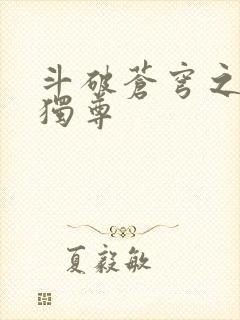 斗破蒼穹之
獨尊
夏毅敏